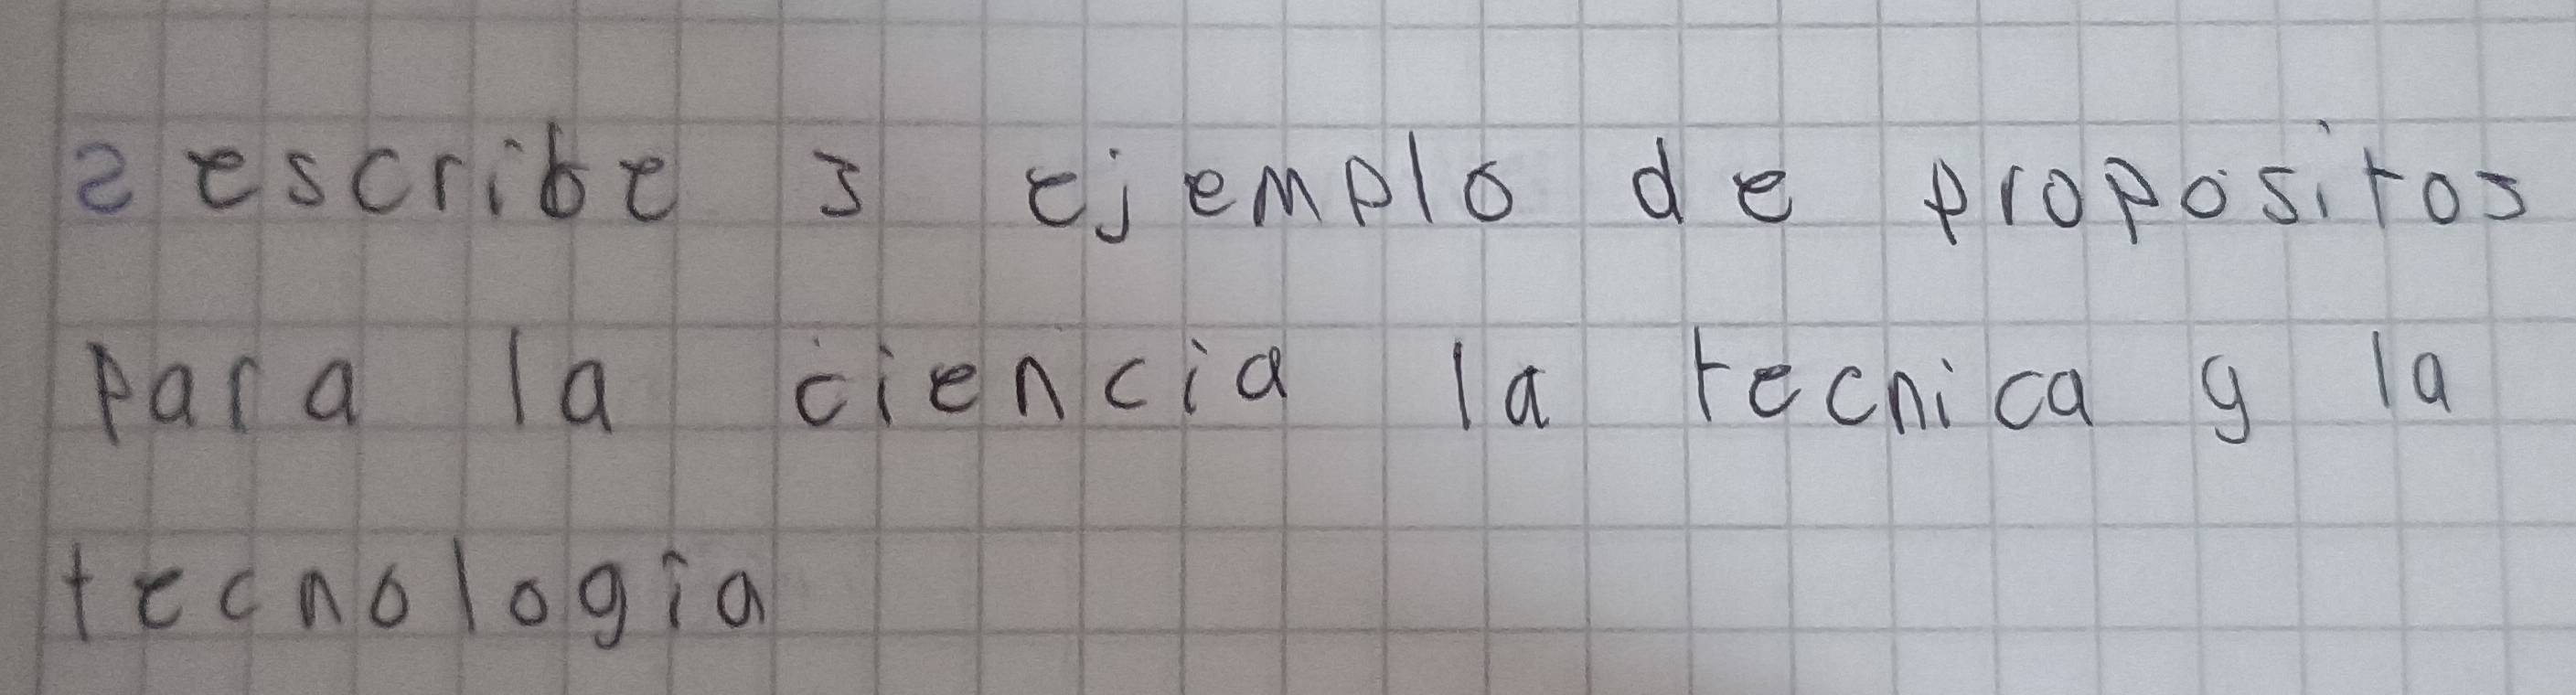 2 escribe 3 ejemplo de propositos
para la ciencia la tecnica y la
tecnologia